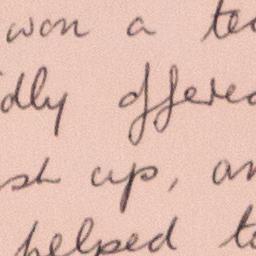 won a te
dly offered
sh up, an
helped to